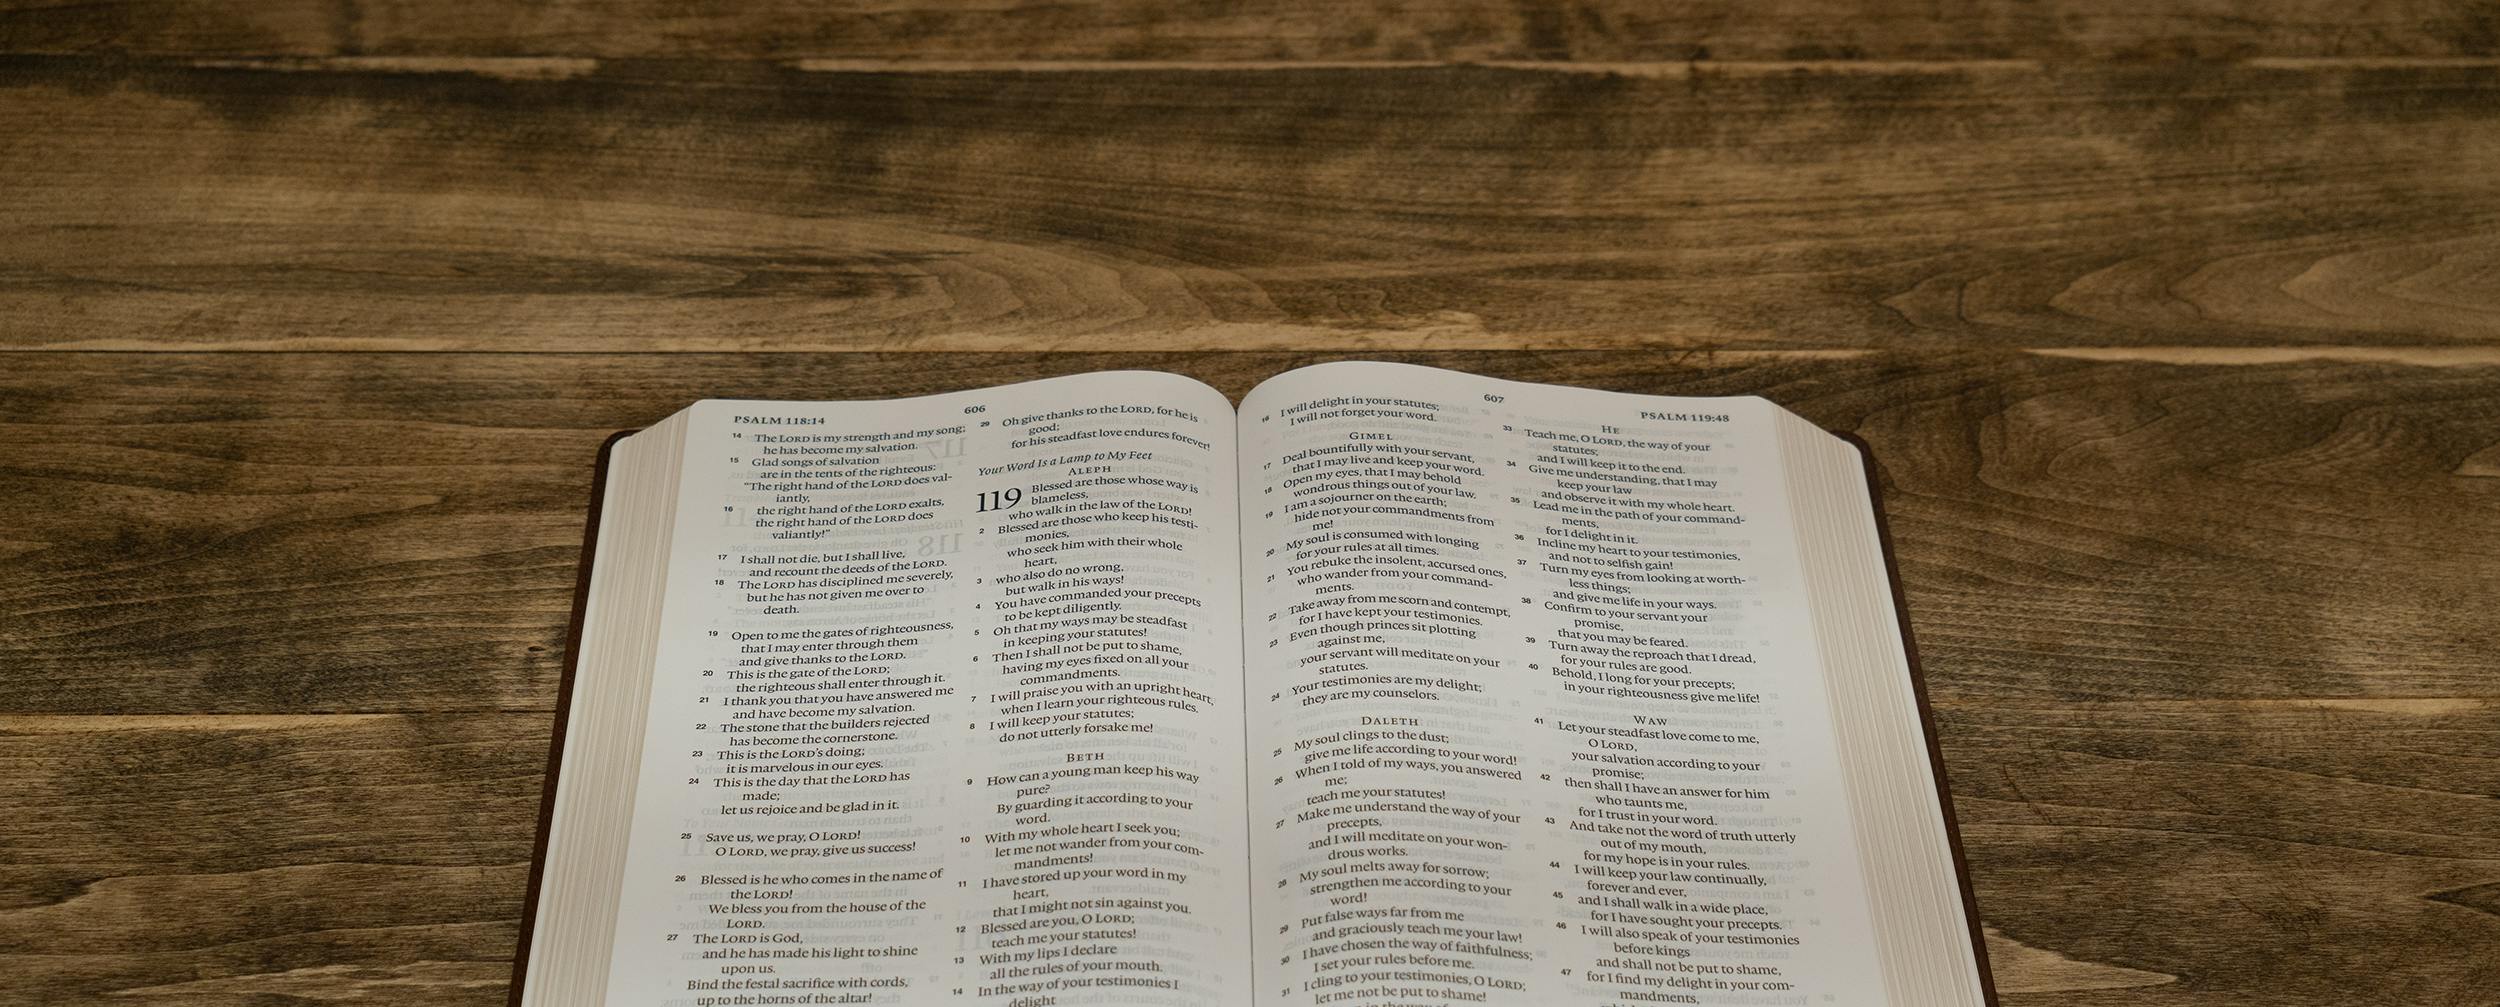 PSALM 118:14
606
14 The LORD is my strength and my song;
he has become my salvation.
15 Glad songs of salvation
are in the tents of the righteous:
"The right hand of the LORD does val-
iantly,
16 the right hand of the LORD exalts,
the right hand of the LORD does
valiantly!"
17 I shall not die, but I shall live,
and recount the deeds of the LORD.
18 The LORD has disciplined me severely,
but he has not given me over to
death.
19 Open to me the gates of righteousness,
that I may enter through them
and give thanks to the LORD.
20 This is the gate of the LORD;
the righteous shall enter through it.
21 I thank you that you have answered me
and have become my salvation.
22 The stone that the builders rejected
has become the cornerstone.
23 This is the LORD's doing;
it is marvelous in our eyes.
24 This is the day that the LORD has
made;
let us rejoice and be glad in it.
25 Save us, we pray, O LORD!
O LORD, we pray, give us success!
26 Blessed is he who comes in the name of
the LORD!
We bless you from the house of the
LORD.
27 The LORD is God,
and he has made his light to shine
upon us.
Bind the festal sacrifice with cords,
up to the horns of the altar!
29 Oh give thanks to the LORD, for he is
good;
for his steadfast love endures forever!
Your Word Is a Lamp to My Feet
ALEPH
119 Blessed are those whose way is
blameless,
who walk in the law of the LORD!
2 Blessed are those who keep his testi-
monies,
who seek him with their whole
heart,
3 who also do no wrong,
but walk in his ways!
4 You have commanded your precepts
to be kept diligently.
5 Oh that my ways may be steadfast
in keeping your statutes!
6 Then I shall not be put to shame,
having my eyes fixed on all your
commandments.
7 I will praise you with an upright heart,
when I learn your righteous rules.
8 I will keep your statutes;
do not utterly forsake me!
BETH
9 How can a young man keep his way
pure?
By guarding it according to your
word.
10 With my whole heart I seek you;
let me not wander from your com-
mandments!
11 I have stored up your word in my
heart,
that I might not sin against you.
12 Blessed are you, O LORD;
teach me your statutes!
13 With my lips I declare
all the rules of your mouth.
14 In the way of your testimonies I
delight
607
PSALM 119:48
16 I will delight in your statutes;
I will not forget your word.
GIMEL
17 Deal bountifully with your servant,
that I may live and keep your word.
18 Open my eyes, that I may behold
wondrous things out of your law.
19 I am a sojourner on the earth;
hide not your commandments from
me!
20 My soul is consumed with longing
for your rules at all times.
21 You rebuke the insolent, accursed ones,
who wander from your command-
ments.
22 Take away from me scorn and contempt,
for I have kept your testimonies.
23 Even though princes sit plotting
against me,
your servant will meditate on your
statutes.
24 Your testimonies are my delight;
they are my counselors.
DALETH
25 My soul clings to the dust;
give me life according to your word!
26 When I told of my ways, you answered
me;
teach me your statutes!
27 Make me understand the way of your
precepts,
and I will meditate on your won-
drous works.
28 My soul melts away for sorrow;
strengthen me according to your
word!
29 Put false ways far from me
and graciously teach me your law!
30 I have chosen the way of faithfulness;
I set your rules before me.
31 I cling to your testimonies, O LORD;
let me not be put to shame!
HE
33 Teach me, O LORD, the way of your
statutes;
and I will keep it to the end.
34 Give me understanding, that I may
keep your law
and observe it with my whole heart.
35 Lead me in the path of your command-
ments,
for I delight in it.
36 Incline my heart to your testimonies,
and not to selfish gain!
37 Turn my eyes from looking at worth-
less things;
and give me life in your ways.
38 Confirm to your servant your
promise,
that you may be feared.
39 Turn away the reproach that I dread,
for your rules are good.
40 Behold, I long for your precepts;
in your righteousness give me life!
WAW
41 Let your steadfast love come to me,
O LORD,
your salvation according to your
promise;
42 then shall I have an answer for him
who taunts me,
for I trust in your word.
43 And take not the word of truth utterly
out of my mouth,
for my hope is in your rules.
44 I will keep your law continually,
forever and ever,
45 and I shall walk in a wide place,
for I have sought your precepts.
46 I will also speak of your testimonies
before kings
and shall not be put to shame,
47 for I find my delight in your com-
mandments,